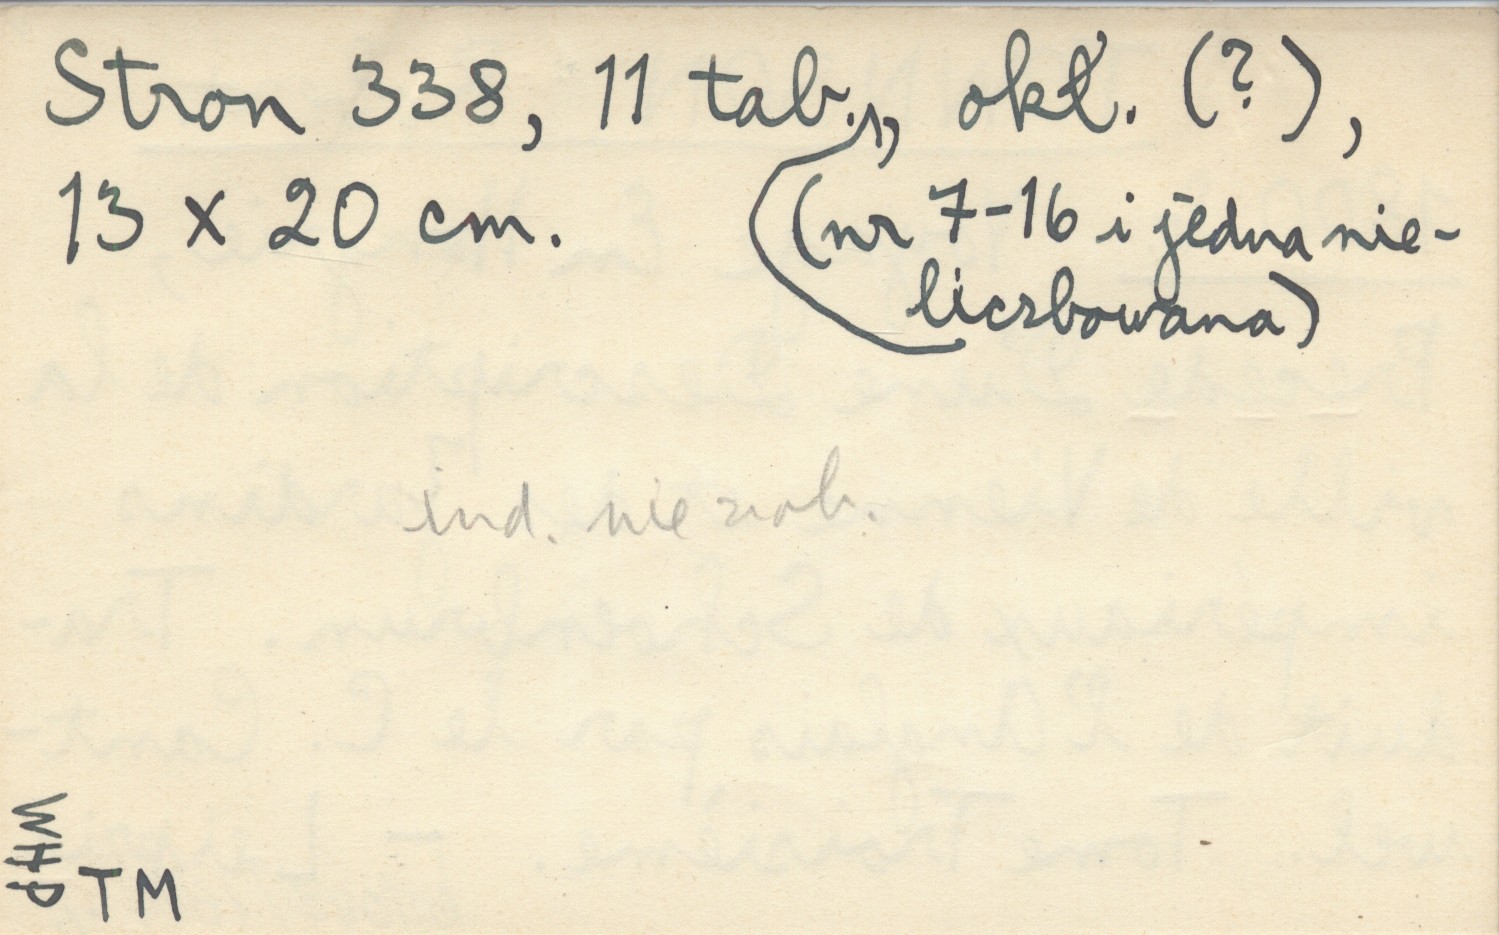 Stron 338, 11 tab., okł. (?),
13 x 20 cm.
(nr 7-16 i jedna nie-
liczbowana)
ind. nie zrob.
WHP
TM